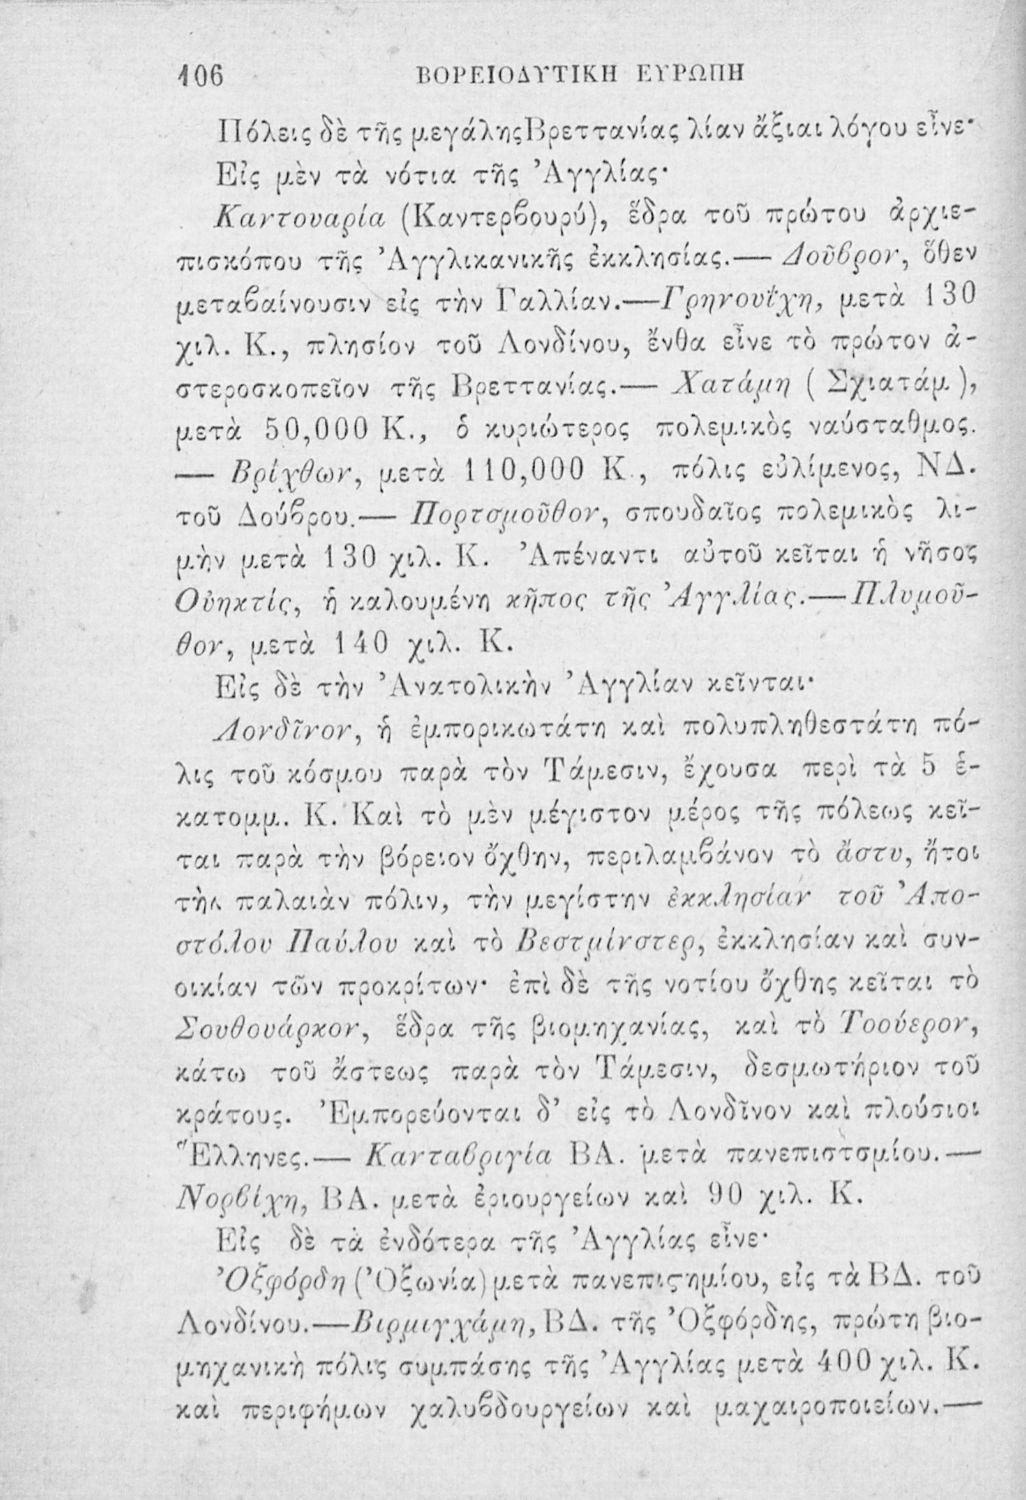 106 ΒΟΡΕΙΟΔΥΤΙΚΗ ΕΥΡΩΠΗ
Πόλεις δὲ τῆς μεγάλης Βρεττανίας λίαν ἄξιαι λόγου εἶνε·
Εἰς μὲν τὰ νότια τῆς Ἀγγλίας·
Καντουαρία (Καντερϐουρύ), ἕδρα τοῦ πρώτου ἀρχιε-
πισκόπου τῆς Ἀγγλικανικῆς ἐκκλησίας.— Δοῦϐρον, ὅθεν
μεταϐαίνουσιν εἰς τὴν Γαλλίαν.—Γρηνουΐχη, μετὰ 130
χιλ. Κ., πλησίον τοῦ Λονδίνου, ἔνθα εἶνε τὸ πρῶτον ἀ-
στεροσκοπεῖον τῆς Βρεττανίας.— Χατάμη ( Σχιατάμ ),
μετὰ 50,000 Κ., ὁ κυριώτερος πολεμικὸς ναύσταθμος.
— Βρίχθων, μετὰ 110,000 Κ., πόλις εὐλίμενος, ΝΔ.
τοῦ Δούϐρου.— Πορτσμοῦθον, σπουδαῖος πολεμικὸς λι-
μὴν μετὰ 130 χιλ. Κ. Ἀπέναντι αὐτοῦ κεῖται ἡ νῆσος
Οὐηκτίς, ἡ καλουμένη κῆπος τῆς Ἀγγλίας.—Πλυμοῦ-
θον, μετὰ 140 χιλ. Κ.
Εἰς δὲ τὴν Ἀνατολικὴν Ἀγγλίαν κεῖνται·
Λονδῖνον, ἡ ἐμπορικωτάτη καὶ πολυπληθεστάτη πό-
λις τοῦ κόσμου παρὰ τὸν Τάμεσιν, ἔχουσα περὶ τὰ 5 ἑ-
κατομμ. Κ. Καὶ τὸ μὲν μέγιστον μέρος τῆς πόλεως κεῖ-
ται παρὰ τὴν βόρειον ὄχθην, περιλαμϐάνον τὸ ἄστυ, ἤτοι
τὴν παλαιὰν πόλιν, τὴν μεγίστην ἐκκλησίαν τοῦ Ἀπο-
στόλου Παύλου καὶ τὸ Βεστμίνστερ, ἐκκλησίαν καὶ συν-
οικίαν τῶν προκρίτων· ἐπὶ δὲ τῆς νοτίου ὄχθης κεῖται τὸ
Σουθουάρκον, ἕδρα τῆς βιομηχανίας, καὶ τὸ Τοούερον,
κάτω τοῦ ἄστεως παρὰ τὸν Τάμεσιν, δεσμωτήριον τοῦ
κράτους. Ἐμπορεύονται δ’ εἰς τὸ Λονδῖνον καὶ πλούσιοι
Ἕλληνες.— Κανταϐριγία ΒΑ. μετὰ πανεπιστσμίου.—
Νορϐίχη, ΒΑ. μετὰ ἐριουργείων καὶ 90 χιλ. Κ.
Εἰς δὲ τὰ ἐνδότερα τῆς Ἀγγλίας εἶνε·
Ὀξφόρδη (Ὀξωνία) μετὰ πανεπιϛημίου, εἰς τὰ ΒΔ. τοῦ
Λονδίνου.—Βιρμιγχάμη, ΒΔ. τῆς Ὀξφόρδης, πρώτη βιο-
μηχανικὴ πόλις συμπάσης τῆς Ἀγγλίας μετὰ 400 χιλ. Κ.
καὶ περιφήμων χαλυϐδουργείων καὶ μαχαιροποιείων.—